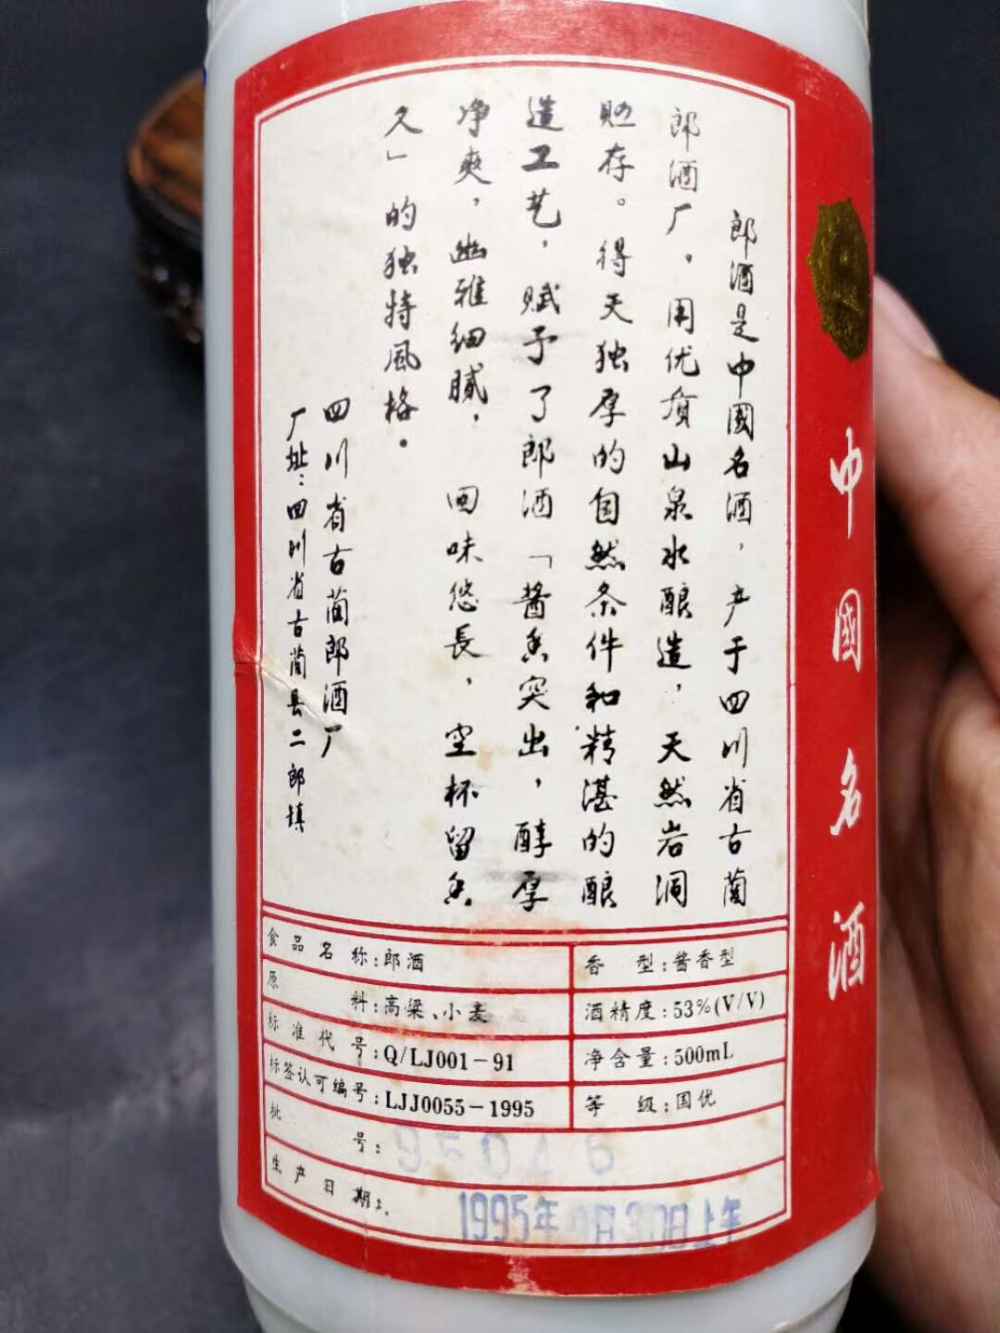 郎酒是中國名酒，产于四川省古蔺
郎酒厂。用优质山泉水酿造，天然岩洞
贮存。得天独厚的自然条件和精湛的酿
造工艺，赋予了郎酒「酱香突出，醇厚
净爽，幽雅细腻，回味悠長，空杯留香
久」的独特風格。
四川省古蔺郎酒厂
厂址：四川省古蔺县二郎镇
中國名酒
食品名称：郎酒
香型：酱香型
原料：高粱、小麦
酒精度：53%(V/V)
标准代号：Q/LJ001－91
净含量：500mL
标签认可编号：LJJ0055－1995
等级：国优
批号：
生产日期：1995年 月30日上午